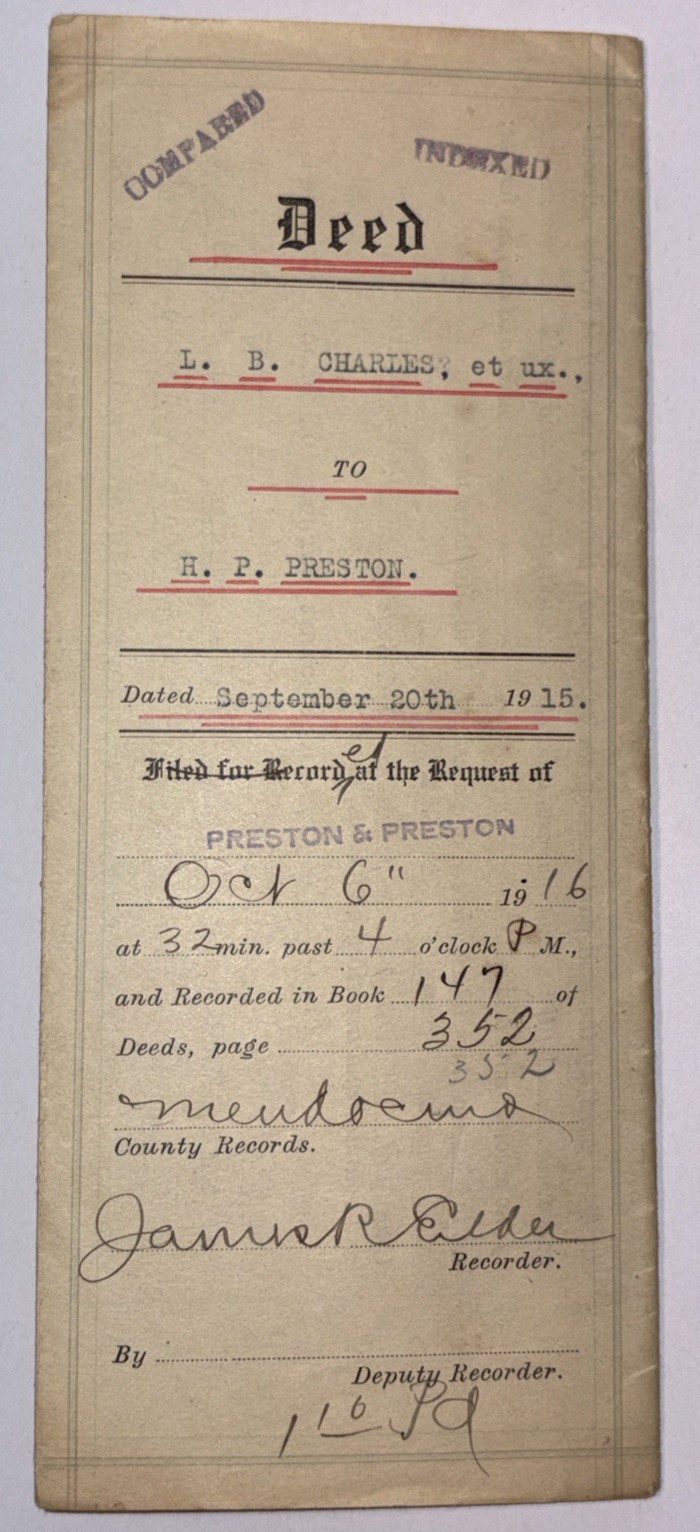 COMPARED
INDEXED
Deed
L. B. CHARLES, et ux.,
TO
H. P. PRESTON.
Dated September 20th 1915.
Filed for Recorded at the Request of
PRESTON & PRESTON
Oct 6" 1916
at 32 min. past 4 o'clock P M.,
and Recorded in Book 147 of
Deeds, page 352
352
Mendocino
County Records.
James R Elder
Recorder.
By
Deputy Recorder.
1 10 Pd